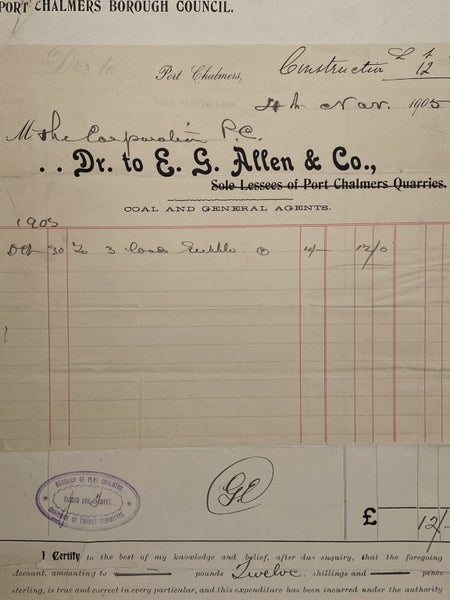 PORT CHALMERS BOROUGH COUNCIL.
Port Chalmers,
Construction £ 12
4th Nov. 1905
M the Corporation P.C.
. . Dr. to E. G. Allen & Co.,
Sole Lessees of Port Chalmers Quarries.
COAL AND GENERAL AGENTS.
1905
Oct 30 To 3 loads Rubble @ 4/- 12/0
BOROUGH OF PORT CHALMERS
PASSED FOR PAYMENT.
CHAIRMAN OF FINANCE COMMITTEE.
GE
£ 12/-
I Certify to the best of my knowledge and belief, after due enquiry, that the foregoing
Account, amounting to pounds Twelve shillings and pence
sterling, is true and correct in every particular, and this expenditure has been incurred under the authority